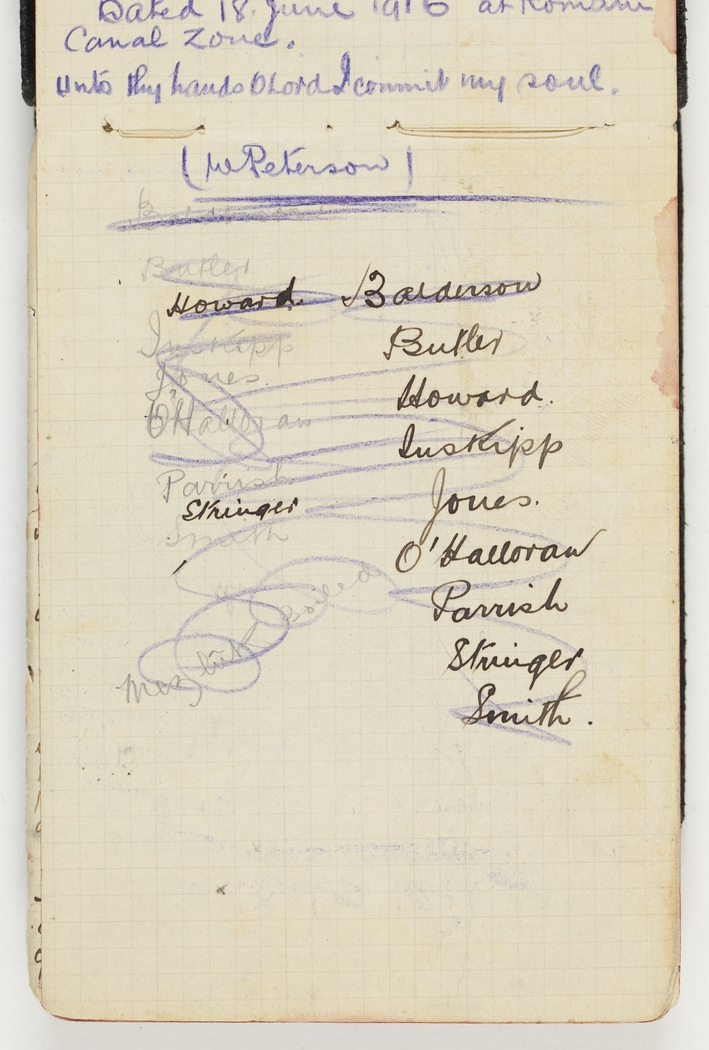 Dated 18. June 1916 at Romani
Canal Zone.
Unto thy hands O Lord I commit my soul.
(W Peterson)
Butler
Howard. Balderson
Inskipp Butler
Jones. Howard.
O'Halloran Inskipp
Parrish Jones.
Stringer
Smith O'Halloran
Parrish
boiled
Stringer
Smith.